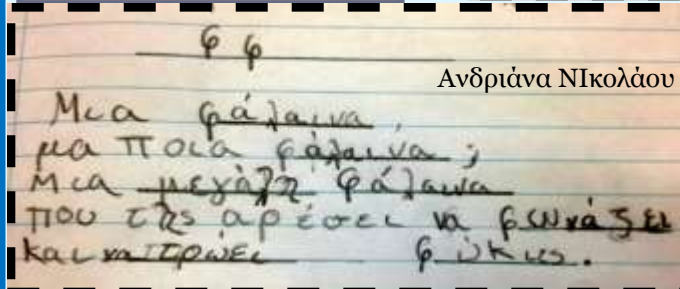 φ φ
Ανδριάνα ΝΙκολάου
Μια φάλαινα,
μα ποια φάλαινα;
Μια μεγάλη φάλαινα
που της αρέσει να φωνάζει
και να τρώει φύκιες.